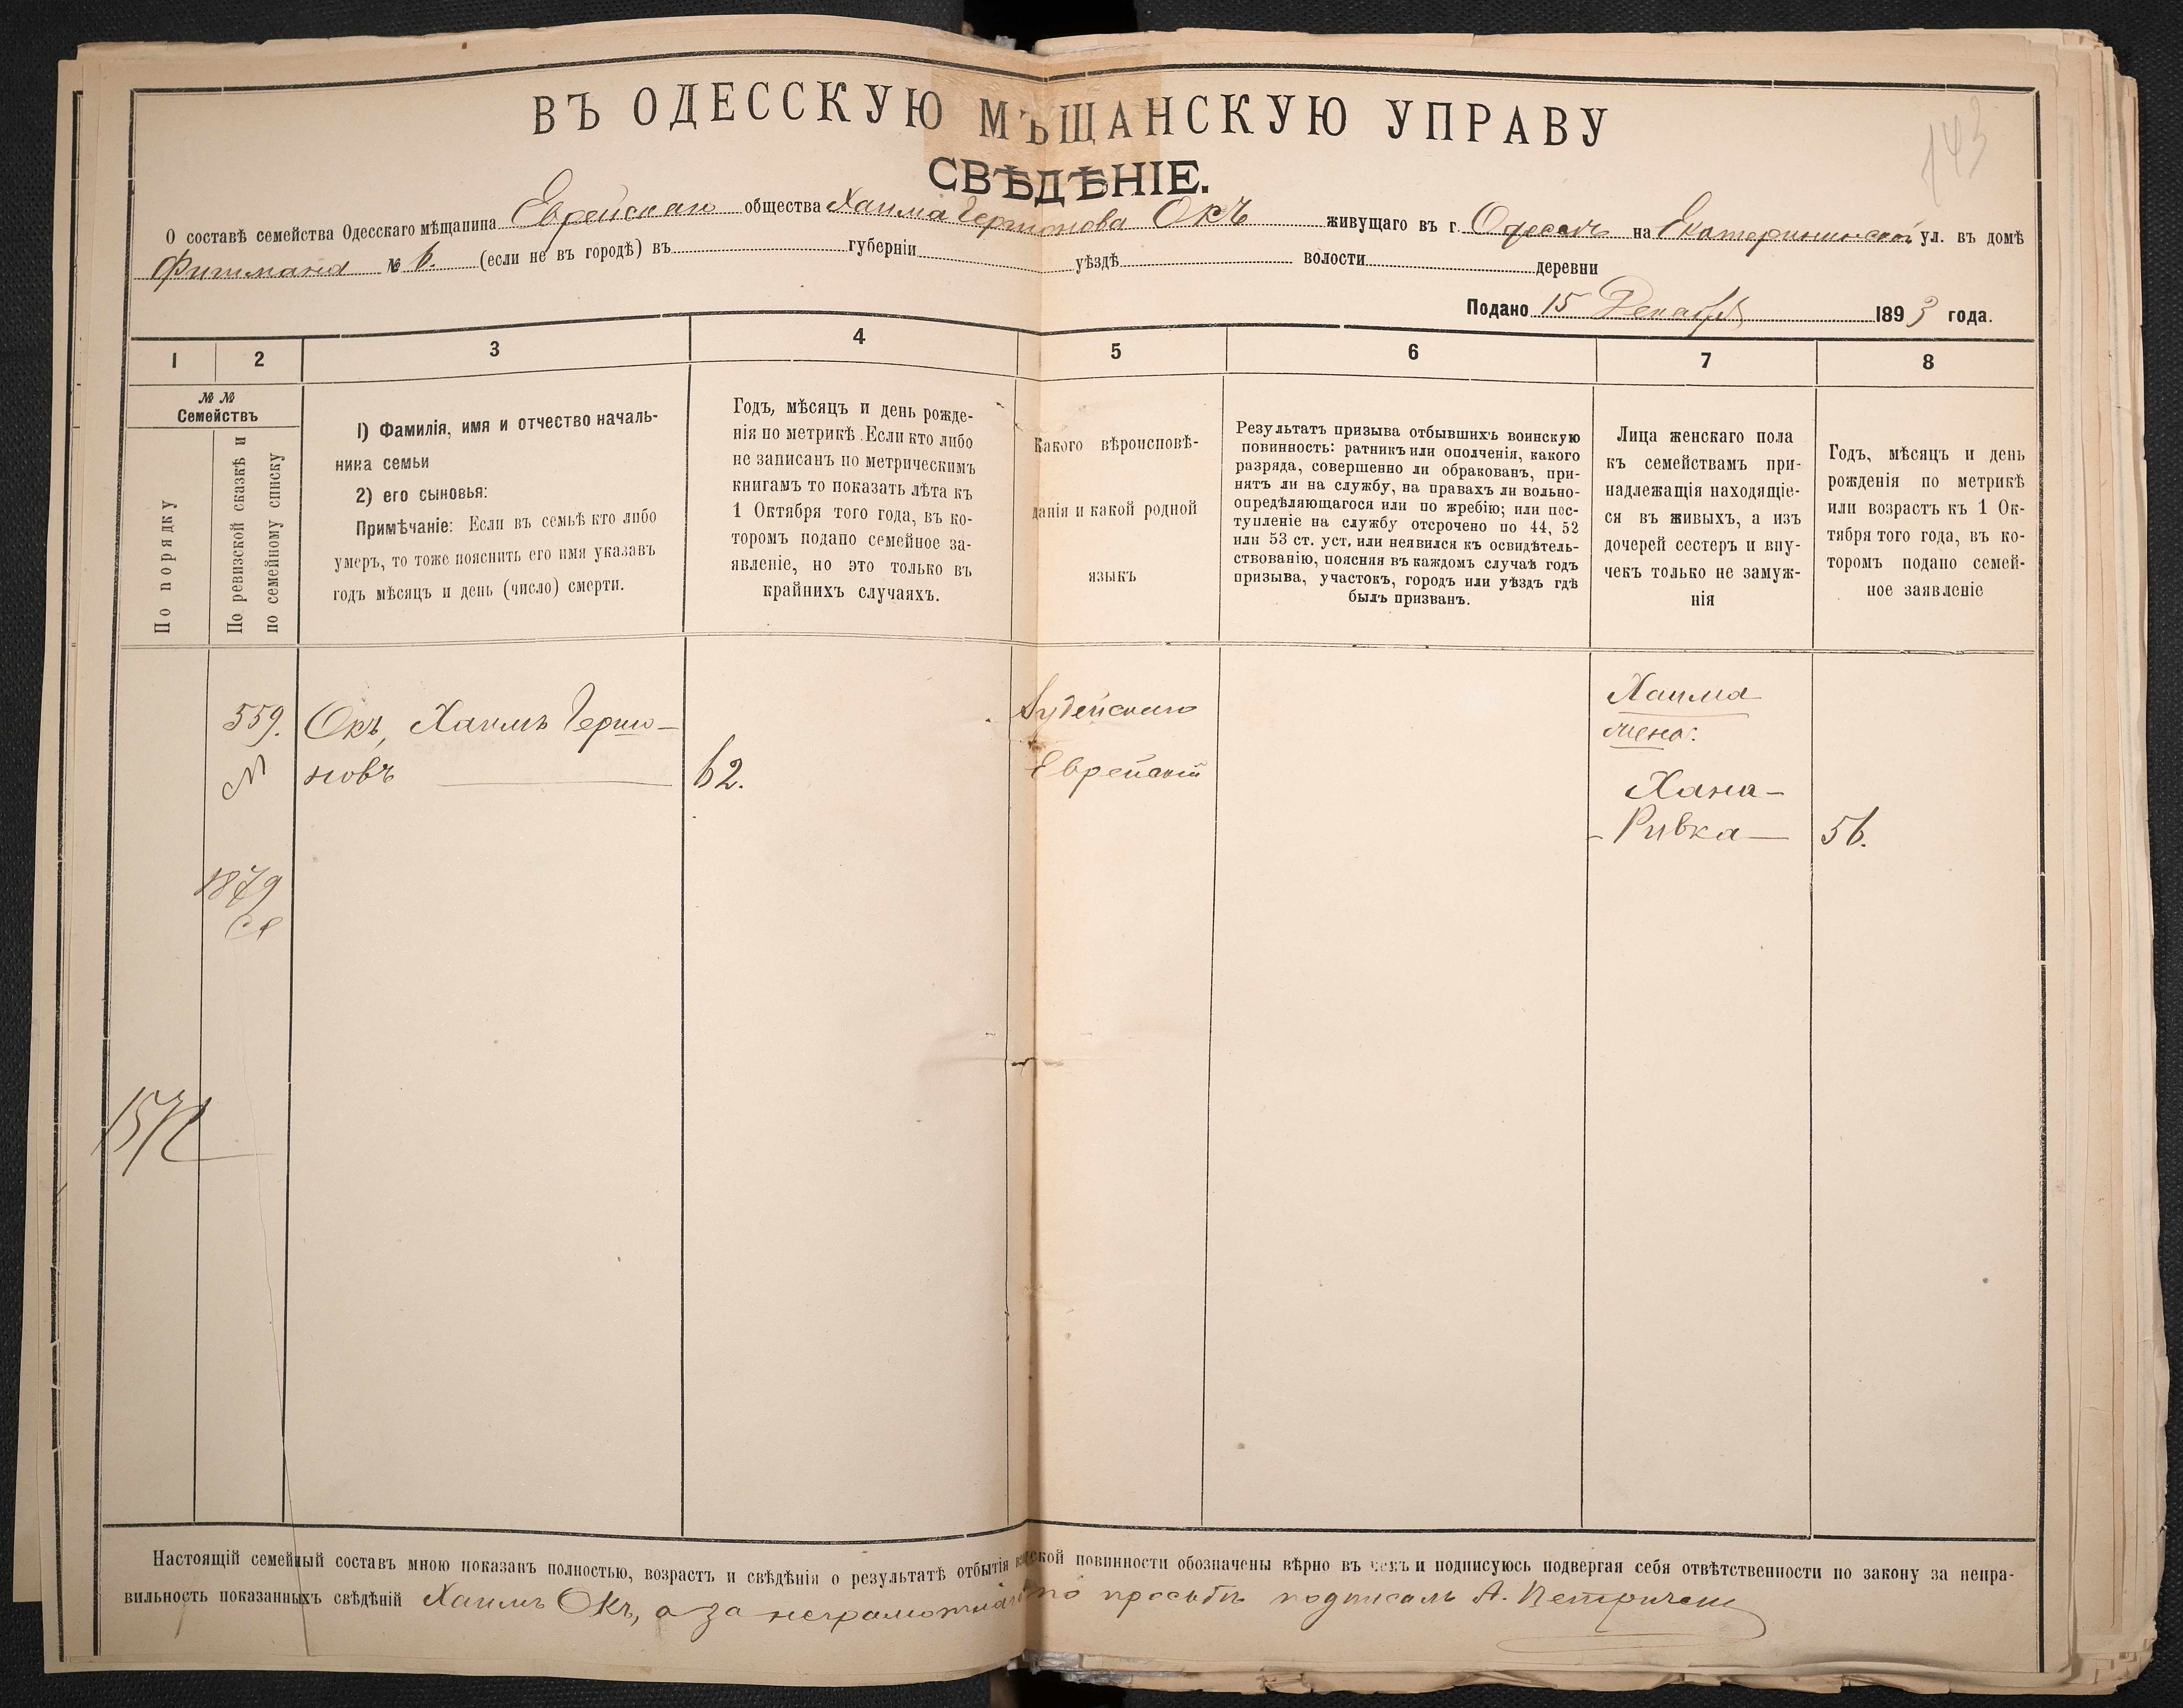 143
ВЪ ОДЕССКУЮ МѢЩАНСКУЮ УПРАВУ
СВѢДѢНІЕ.
О составѣ семейства Одесскаго мѣщанина Еврейскаго общества Хаима Гершонова Окъ живущаго въ г. Одессѣ на Екатерининской ул. въ домѣ
№ 6. (если не въ городѣ) въ губерніи уѣздѣ волости деревни
Подано 15 Декабря 1893 года.
1 2 3 4 5 6 7 8
№ №
Семействъ
По порядку
По ревизской сказкѣ и
по семейному списку
1) Фамилія, имя и отчество началь-
ника семьи
2) его сыновья:
Примѣчаніе: Если въ семьѣ кто либо
умеръ, то тоже пояснить его имя указавъ
годъ мѣсяцъ и день (число) смерти.
Годъ, мѣсяцъ и день рожде-
нія по метрикѣ. Если кто либо
не записанъ по метрическимъ
книгамъ то показать лѣта къ
1 Октября того года, въ ко-
торомъ подано семейное за-
явленіе, но это только въ
крайнихъ случаяхъ.
Какого вѣроисповѣ-
данія и какой родной
языкъ
Результатъ призыва отбывшихъ воинскую
повинность: ратникъ или ополченія, какого
разряда, совершенно ли обракованъ, при-
нятъ ли на службу, на правахъ ли вольно-
опредѣляющагося или по жребію; или пос-
тупленіе на службу отсрочено по 44, 52
или 53 ст. уст, или неявился къ освидѣтель-
ствованію, поясняя въ каждомъ случаѣ годъ
призыва, участокъ, городъ или уѣздъ гдѣ
былъ призванъ.
Лица женскаго пола
къ семействамъ при-
надлежащія находящіе-
ся въ живыхъ, а изъ
дочерей сестеръ и вну-
чекъ только не замуж-
нія
Годъ, мѣсяцъ и день
рожденія по метрикѣ
или возрастъ къ 1 Ок-
тября того года, въ ко-
торомъ подано семей-
ное заявленіе
559.
М
1879
Окъ, Хаимъ Гершо-
новъ
62.
Іудейскаго
Еврейскій
Хаима
жена:
Хана-
-Ривка
56.
Настоящій семейный составъ мною показанъ полностью, возрастъ и свѣдѣнія о результатѣ отбытія воинской повинности обозначены вѣрно въ чемъ и подписуюсь подвергая себя отвѣтственности по закону за непра-
вильность показанныхъ свѣдѣній Хаимъ Окъ, а за неграмотнаго по просьбѣ подписалъ А.